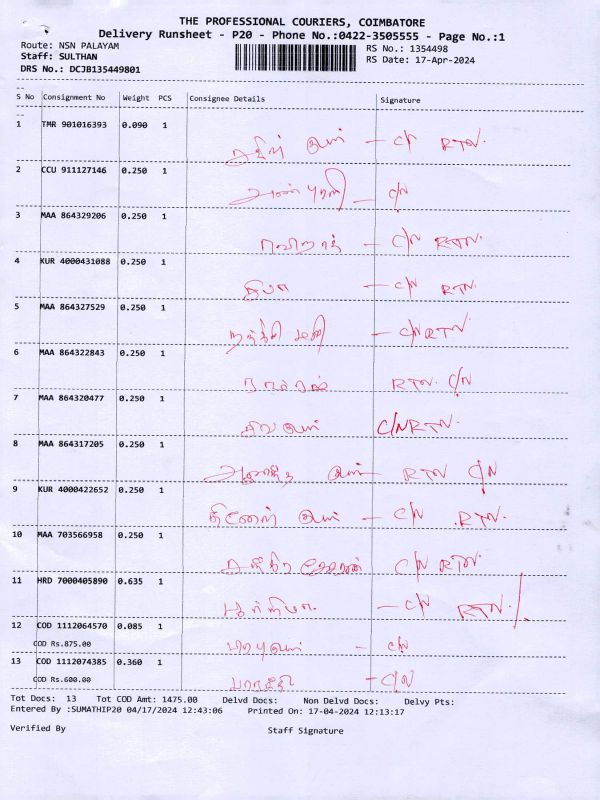 THE PROFESSIONAL COURIERS, COIMBATORE
Delivery Runsheet - P20 - Phone No.:0422-3505555 - Page No.:1
Route: NSN PALAYAM
RS No.: 1354498
Staff: SULTHAN
RS Date: 17-Apr-2024
DRS No.: DCJB135449801
S No Consignment No Weight PCS Consignee Details Signature
1 TMR 901016393 0.090 1
- C/N RTN.
2 CCU 911127146 0.250 1
- C/N
3 MAA 864329206 0.250 1
- C/N RTN.
4 KUR 4000431088 0.250 1
- C/N RTN.
5 MAA 864327529 0.250 1
- C/N RTN.
6 MAA 864322843 0.250 1
RTN. C/N
7 MAA 864320477 0.250 1
C/N RTN.
8 MAA 864317205 0.250 1
RTN C/N
9 KUR 4000422652 0.250 1
- C/N RTN.
10 MAA 703566958 0.250 1
C/N RTN.
11 HRD 7000405890 0.635 1
- C/N RTN
12 COD 1112064570 0.085 1
COD Rs.875.00 - C/N
13 COD 1112074385 0.360 1
COD Rs.600.00 - C/N
Tot Docs: 13 Tot COD Amt: 1475.00 Delvd Docs: Non Delvd Docs: Delvy Pts:
Entered By :SUMATHIP20 04/17/2024 12:43:06 Printed On: 17-04-2024 12:13:17
Verified By Staff Signature